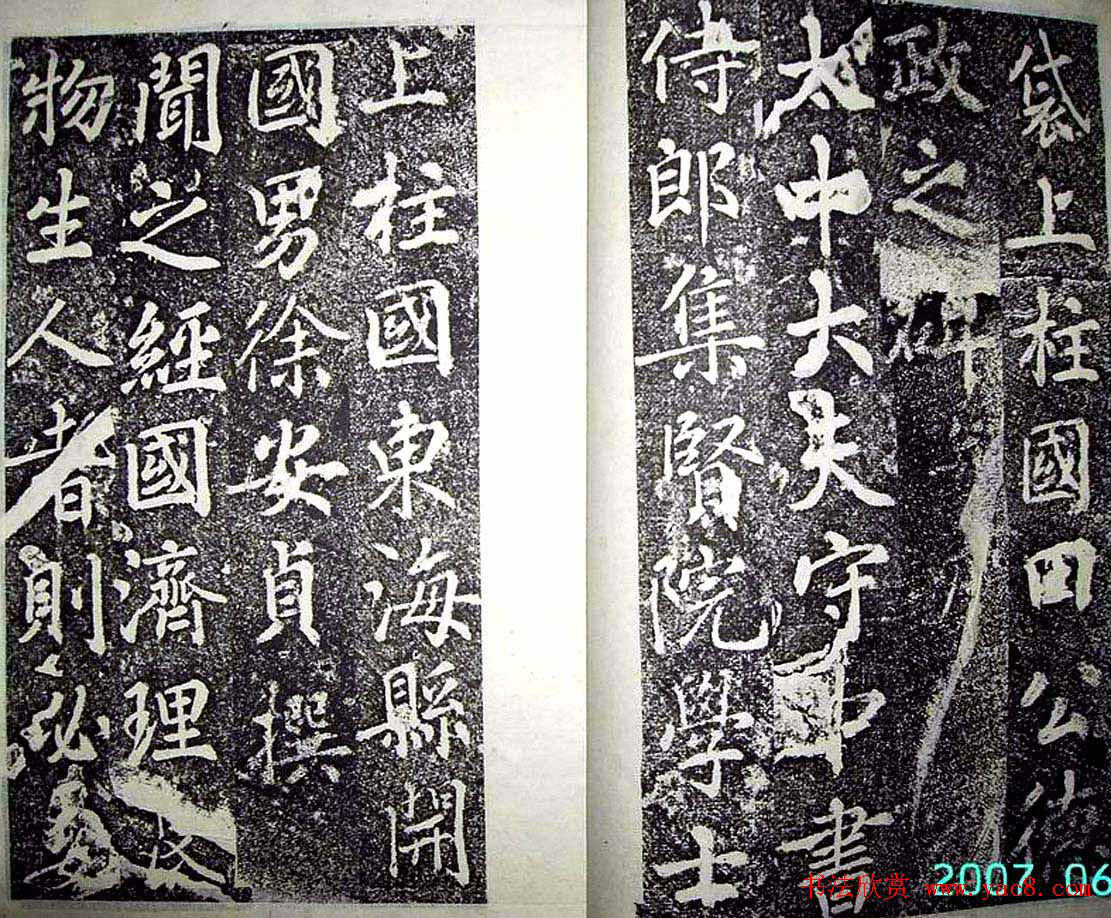 袋上柱國田公德
政之碑
太中大夫守中書
侍郎集賢院學士
上柱國東海縣開
國男徐安貞撰
聞之經國濟理
物生人者則必
2007 06
书法欣赏 www.yac8.com